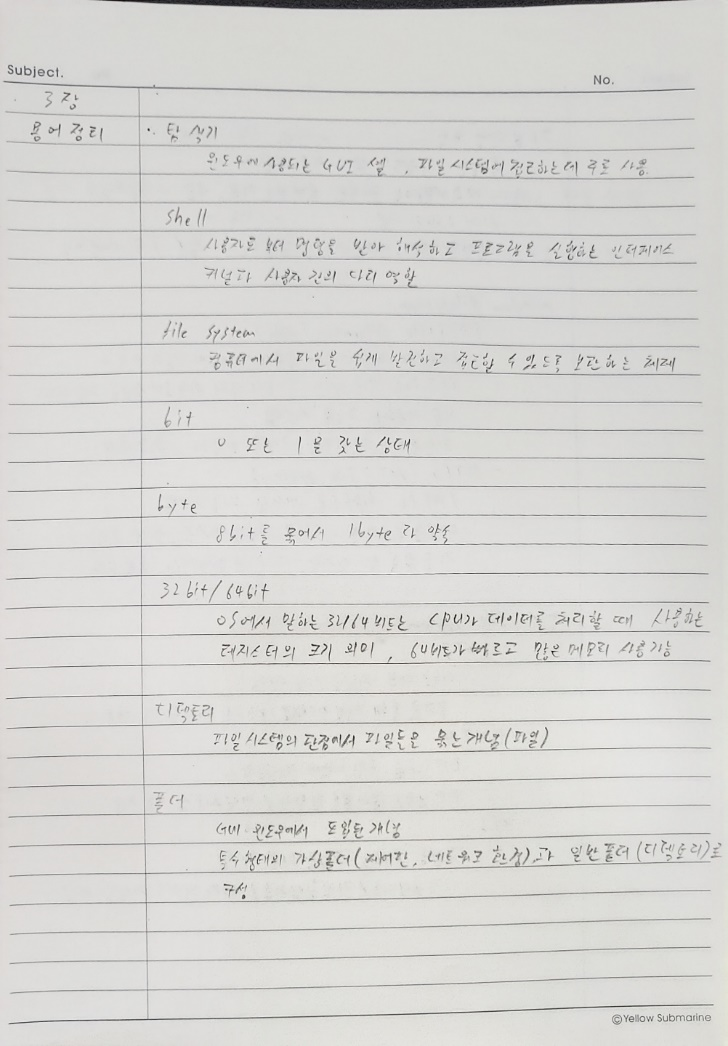 Subject.
No.
3장
용어 정리
· 탐색기
윈도우에 사용되는 GUI 셸, 파일 시스템에 접근하는데 주로 사용.
shell
사용자로 부터 명령을 받아 해석하고 프로그램을 실행하는 인터페이스
커널과 사용자 간의 다리 역할
file system
컴퓨터에서 파일을 쉽게 발견하고 접근할 수 있도록 보관하는 체제
bit
0 또는 1을 갖는 상태
byte
8bit를 묶어서 1byte라 약속
32bit/64bit
OS에서 말하는 32/64비트는 CPU가 데이터를 처리할 때 사용하는
레지스터의 크기 의미, 64비트가 빠르고 많은 메모리 사용 가능
디렉토리
파일 시스템의 관점에서 파일들을 묶는 개념(파일)
폴더
GUI 윈도우에서 도입된 개념
특수형태의 가상폴더(제어판, 네트워크 환경)과 일반폴더(디렉토리)로
구성
©Yellow Submarine